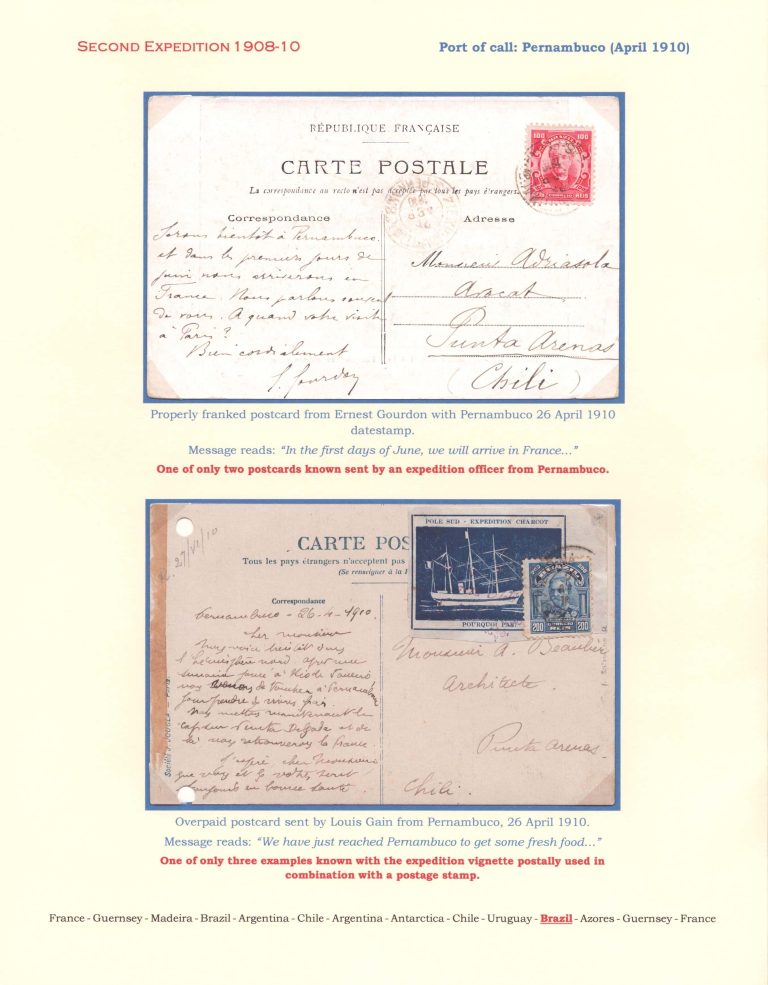 SECOND EXPEDITION 1908-10
Port of call: Pernambuco (April 1910)
RÉPUBLIQUE FRANÇAISE
CARTE POSTALE
La correspondance au recto n'est pas acceptée par tous les pays étrangers.
Correspondance
Adresse
100 100
BRAZIL
REIS
Serons bientôt à Pernambuco
et dans les premiers jours de
juin nous arriverons en
France. Nous parlons souvent
de vous. A quand votre visite
à Paris?
Bien cordialement
Gourdon
Monsieur Adriasola
Punta Arenas
(Chili)
Properly franked postcard from Ernest Gourdon with Pernambuco 26 April 1910
datestamp.
Message reads: “In the first days of June, we will arrive in France...”
One of only two postcards known sent by an expedition officer from Pernambuco.
27/VI/10
CARTE POS
Tous les pays étrangers n'acceptent pas
(Se renseigner à la
POLE SUD - EXPEDITION CHARCOT
POURQUOI PAS
200 200
REIS
Correspondance
Pernambuco - 26-4-1910
Cher monsieur
Nous voici bientôt dans
l'hémisphère nord, après une
semaine passée à Rio de Janeiro
nous de toucher à Pernambuco
pour prendre des vivres frais.
Nous mettons maintenant le
cap sur Punta Delgada et de
là nous retournerons en France.
J'espère, cher Monsieur
que vous et les votres sont
toujours en bonne santé
Monsieur A. Beaulier
Architecte.
Punta Arenas
Chili.
Overpaid postcard sent by Louis Gain from Pernambuco, 26 April 1910.
Message reads: “We have just reached Pernambuco to get some fresh food...”
One of only three examples known with the expedition vignette postally used in
combination with a postage stamp.
France - Guernsey - Madeira - Brazil - Argentina - Chile - Argentina - Antarctica - Chile - Uruguay - Brazil - Azores - Guernsey - France